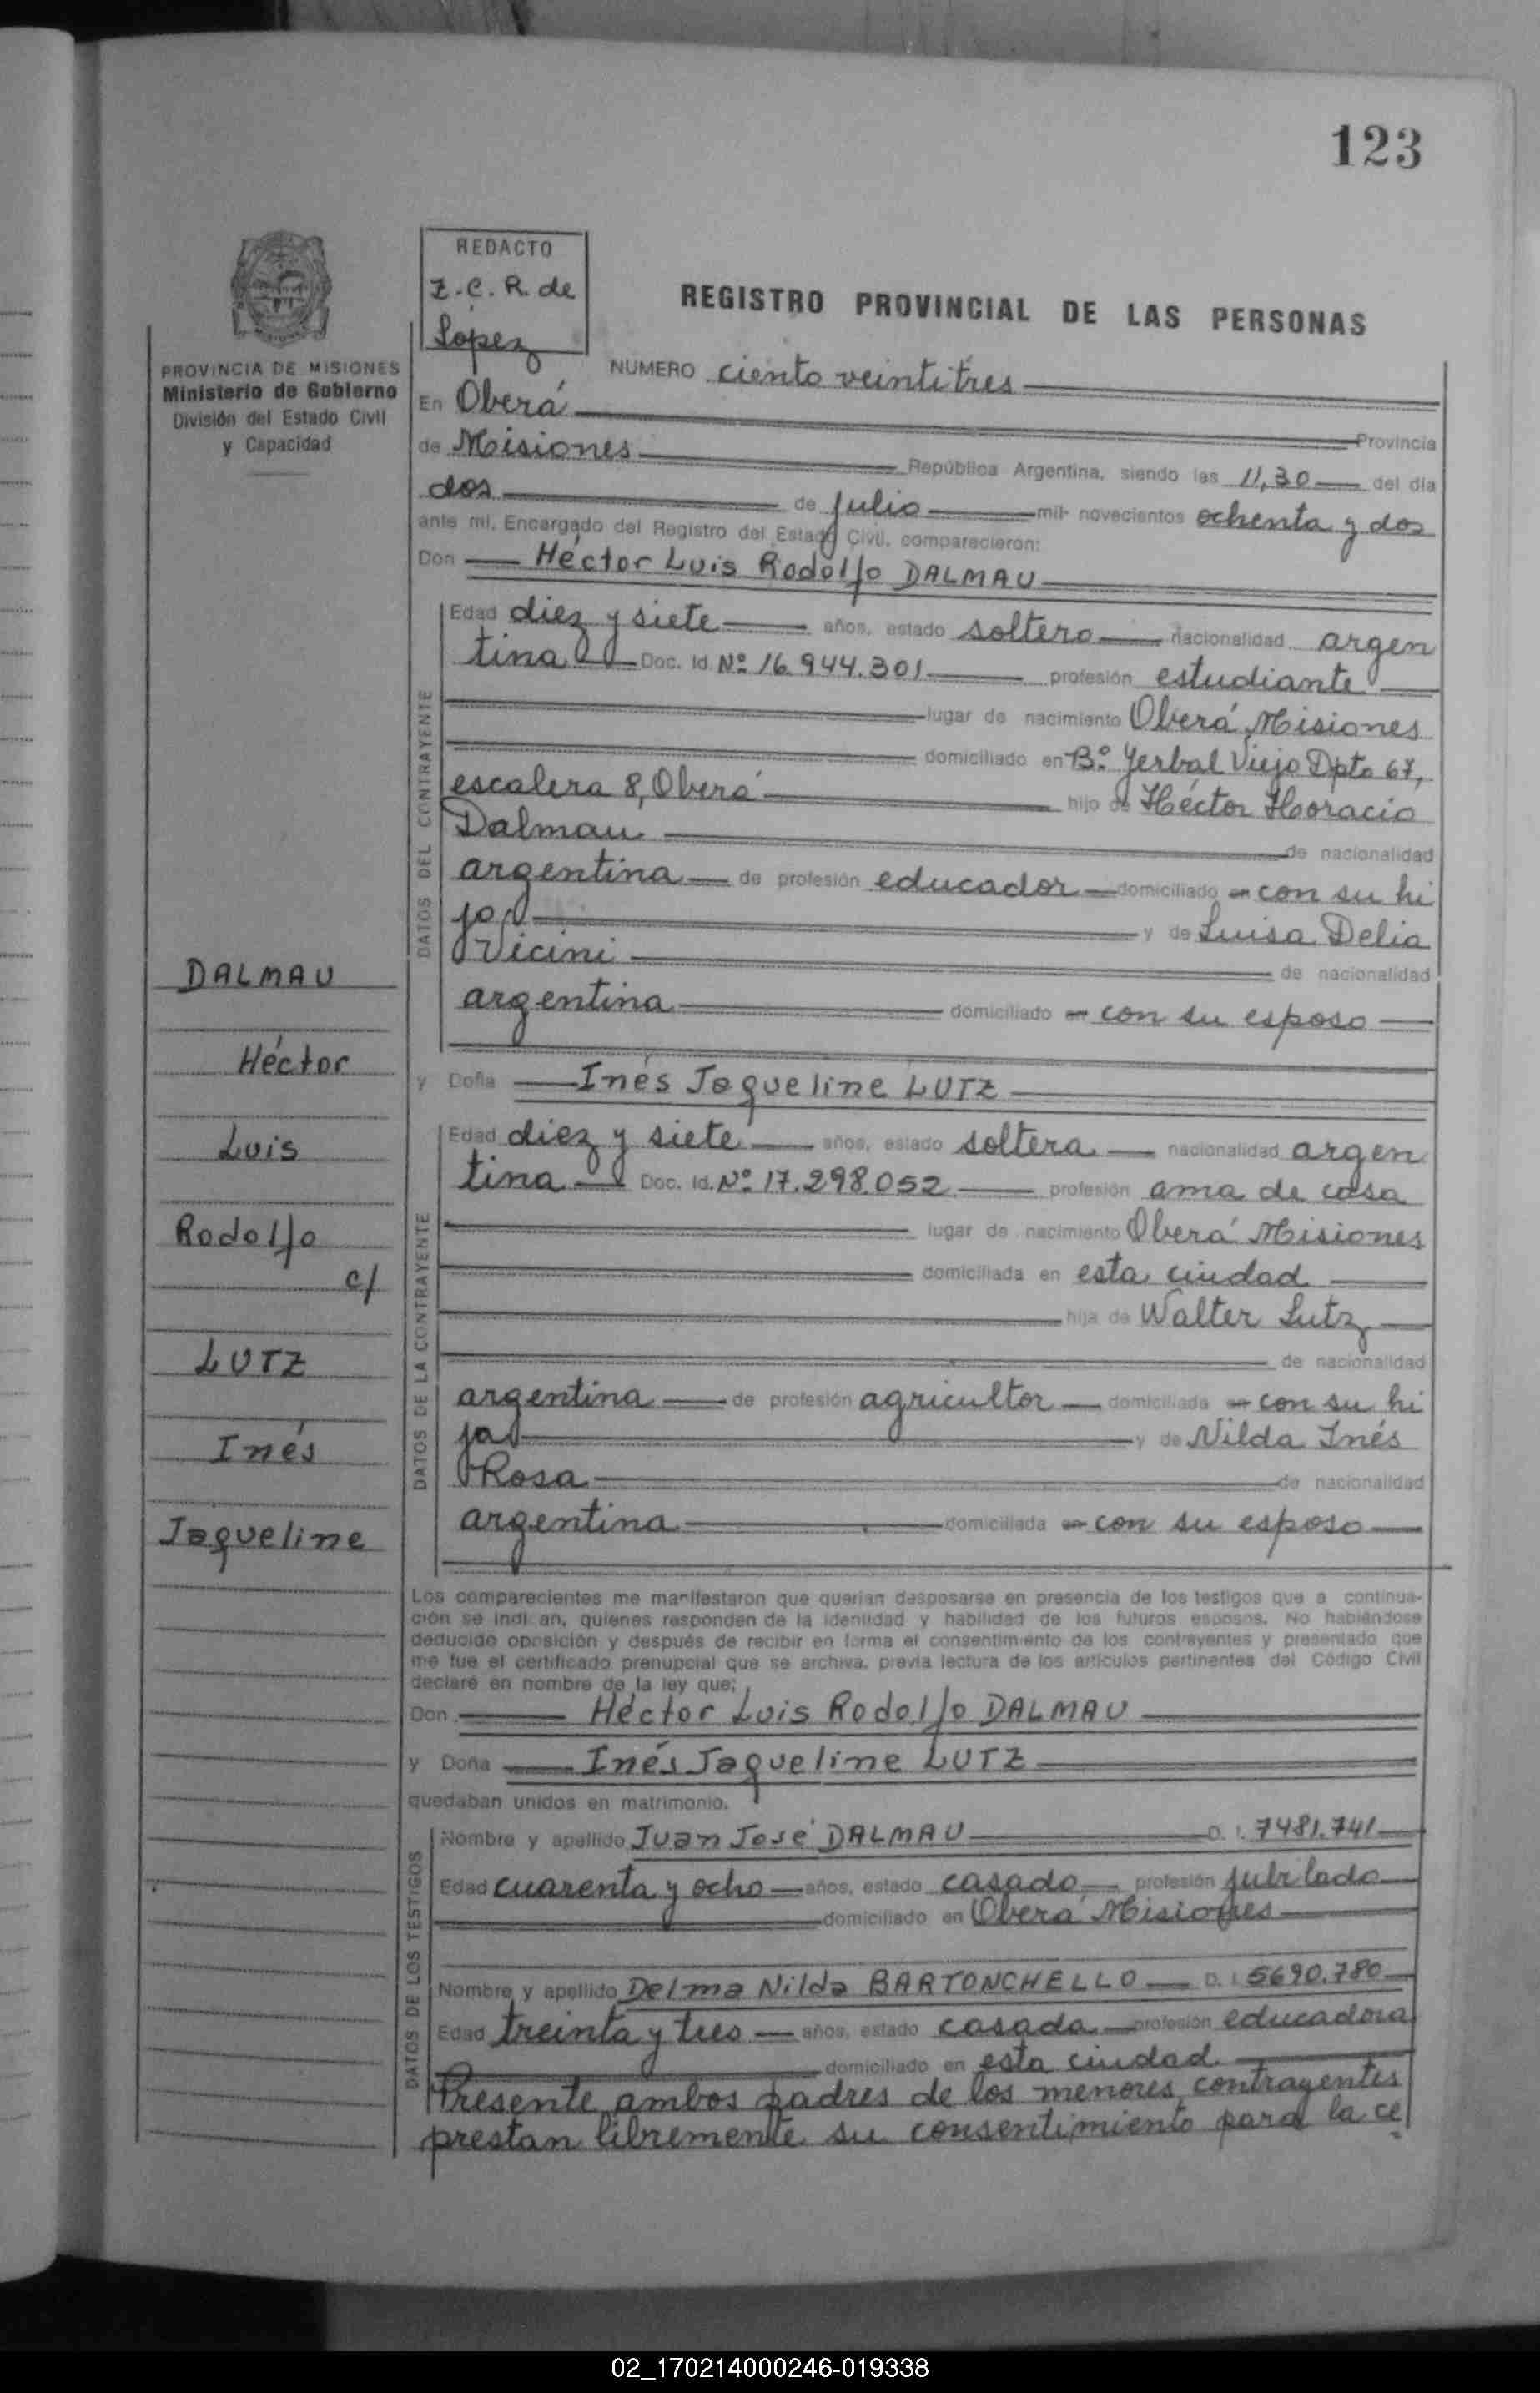 123
REDACTO
Z.C.R. de
Lopez
REGISTRO PROVINCIAL DE LAS PERSONAS
PROVINCIA DE MISIONES
Ministerio de Gobierno
División del Estado Civil
y Capacidad
NUMERO ciento veintitres
En Oberá
Provincia
de Misiones República Argentina, siendo las 11,30 del día
dos de julio mil novecientos ochenta y dos
ante mí, Encargado del Registro del Estado Civil, comparecieron:
Don Héctor Luis Rodolfo DALMAU
DATOS DEL CONTRAYENTE
Edad diez y siete años, estado soltero nacionalidad argen
tina Doc. Id. Nº 16.944.301 profesión estudiante
lugar de nacimiento Oberá, Misiones
domiciliado en Bº Yerbal Viejo Dpto 67,
escalera 8, Oberá hijo de Héctor Horacio
Dalmau de nacionalidad
argentina de profesión educador domiciliado en con su hi
jo y de Luisa Delia
Vicini de nacionalidad
argentina domiciliado en con su esposo
y Doña Inés Jaqueline LUTZ
DATOS DE LA CONTRAYENTE
Edad diez y siete años, estado soltera nacionalidad argen
tina Doc. Id. Nº 17.298.052 profesión ama de casa
lugar de nacimiento Oberá Misiones
domiciliada en esta ciudad
hija de Walter Lutz
de nacionalidad
argentina de profesión agricultor domiciliada en con su hi
ja y de Nilda Inés
Rosa de nacionalidad
argentina domiciliada en con su esposo
DALMAU
Héctor
Luis
Rodolfo
c/
LUTZ
Inés
Jaqueline
Los comparecientes me manifestaron que querían desposarse en presencia de los testigos que a continua-
ción se indi an, quienes responden de la identidad y habilidad de los futuros esposos. No habiéndose
deducido oposición y después de recibir en forma el consentimiento de los contrayentes y presentado que
me fue el certificado prenupcial que se archiva, previa lectura de los artículos pertinentes del Código Civil
declaré en nombre de la ley que:
Don Héctor Luis Rodolfo DALMAU
y Doña Inés Jaqueline LUTZ
quedaban unidos en matrimonio.
DATOS DE LOS TESTIGOS
Nombre y apellido Juan José DALMAU D. I. 7481.741
Edad cuarenta y ocho años, estado casado profesión jubilado
domiciliado en Oberá Misiones
Nombre y apellido Delma Nilda BARTONCHELLO D. I. 5690.780
Edad treinta y tres años, estado casada profesión educadora
domiciliado en esta ciudad
Presente ambos padres de los menores contrayentes
prestan libremente su consentimiento para la ce
02_170214000246-019338